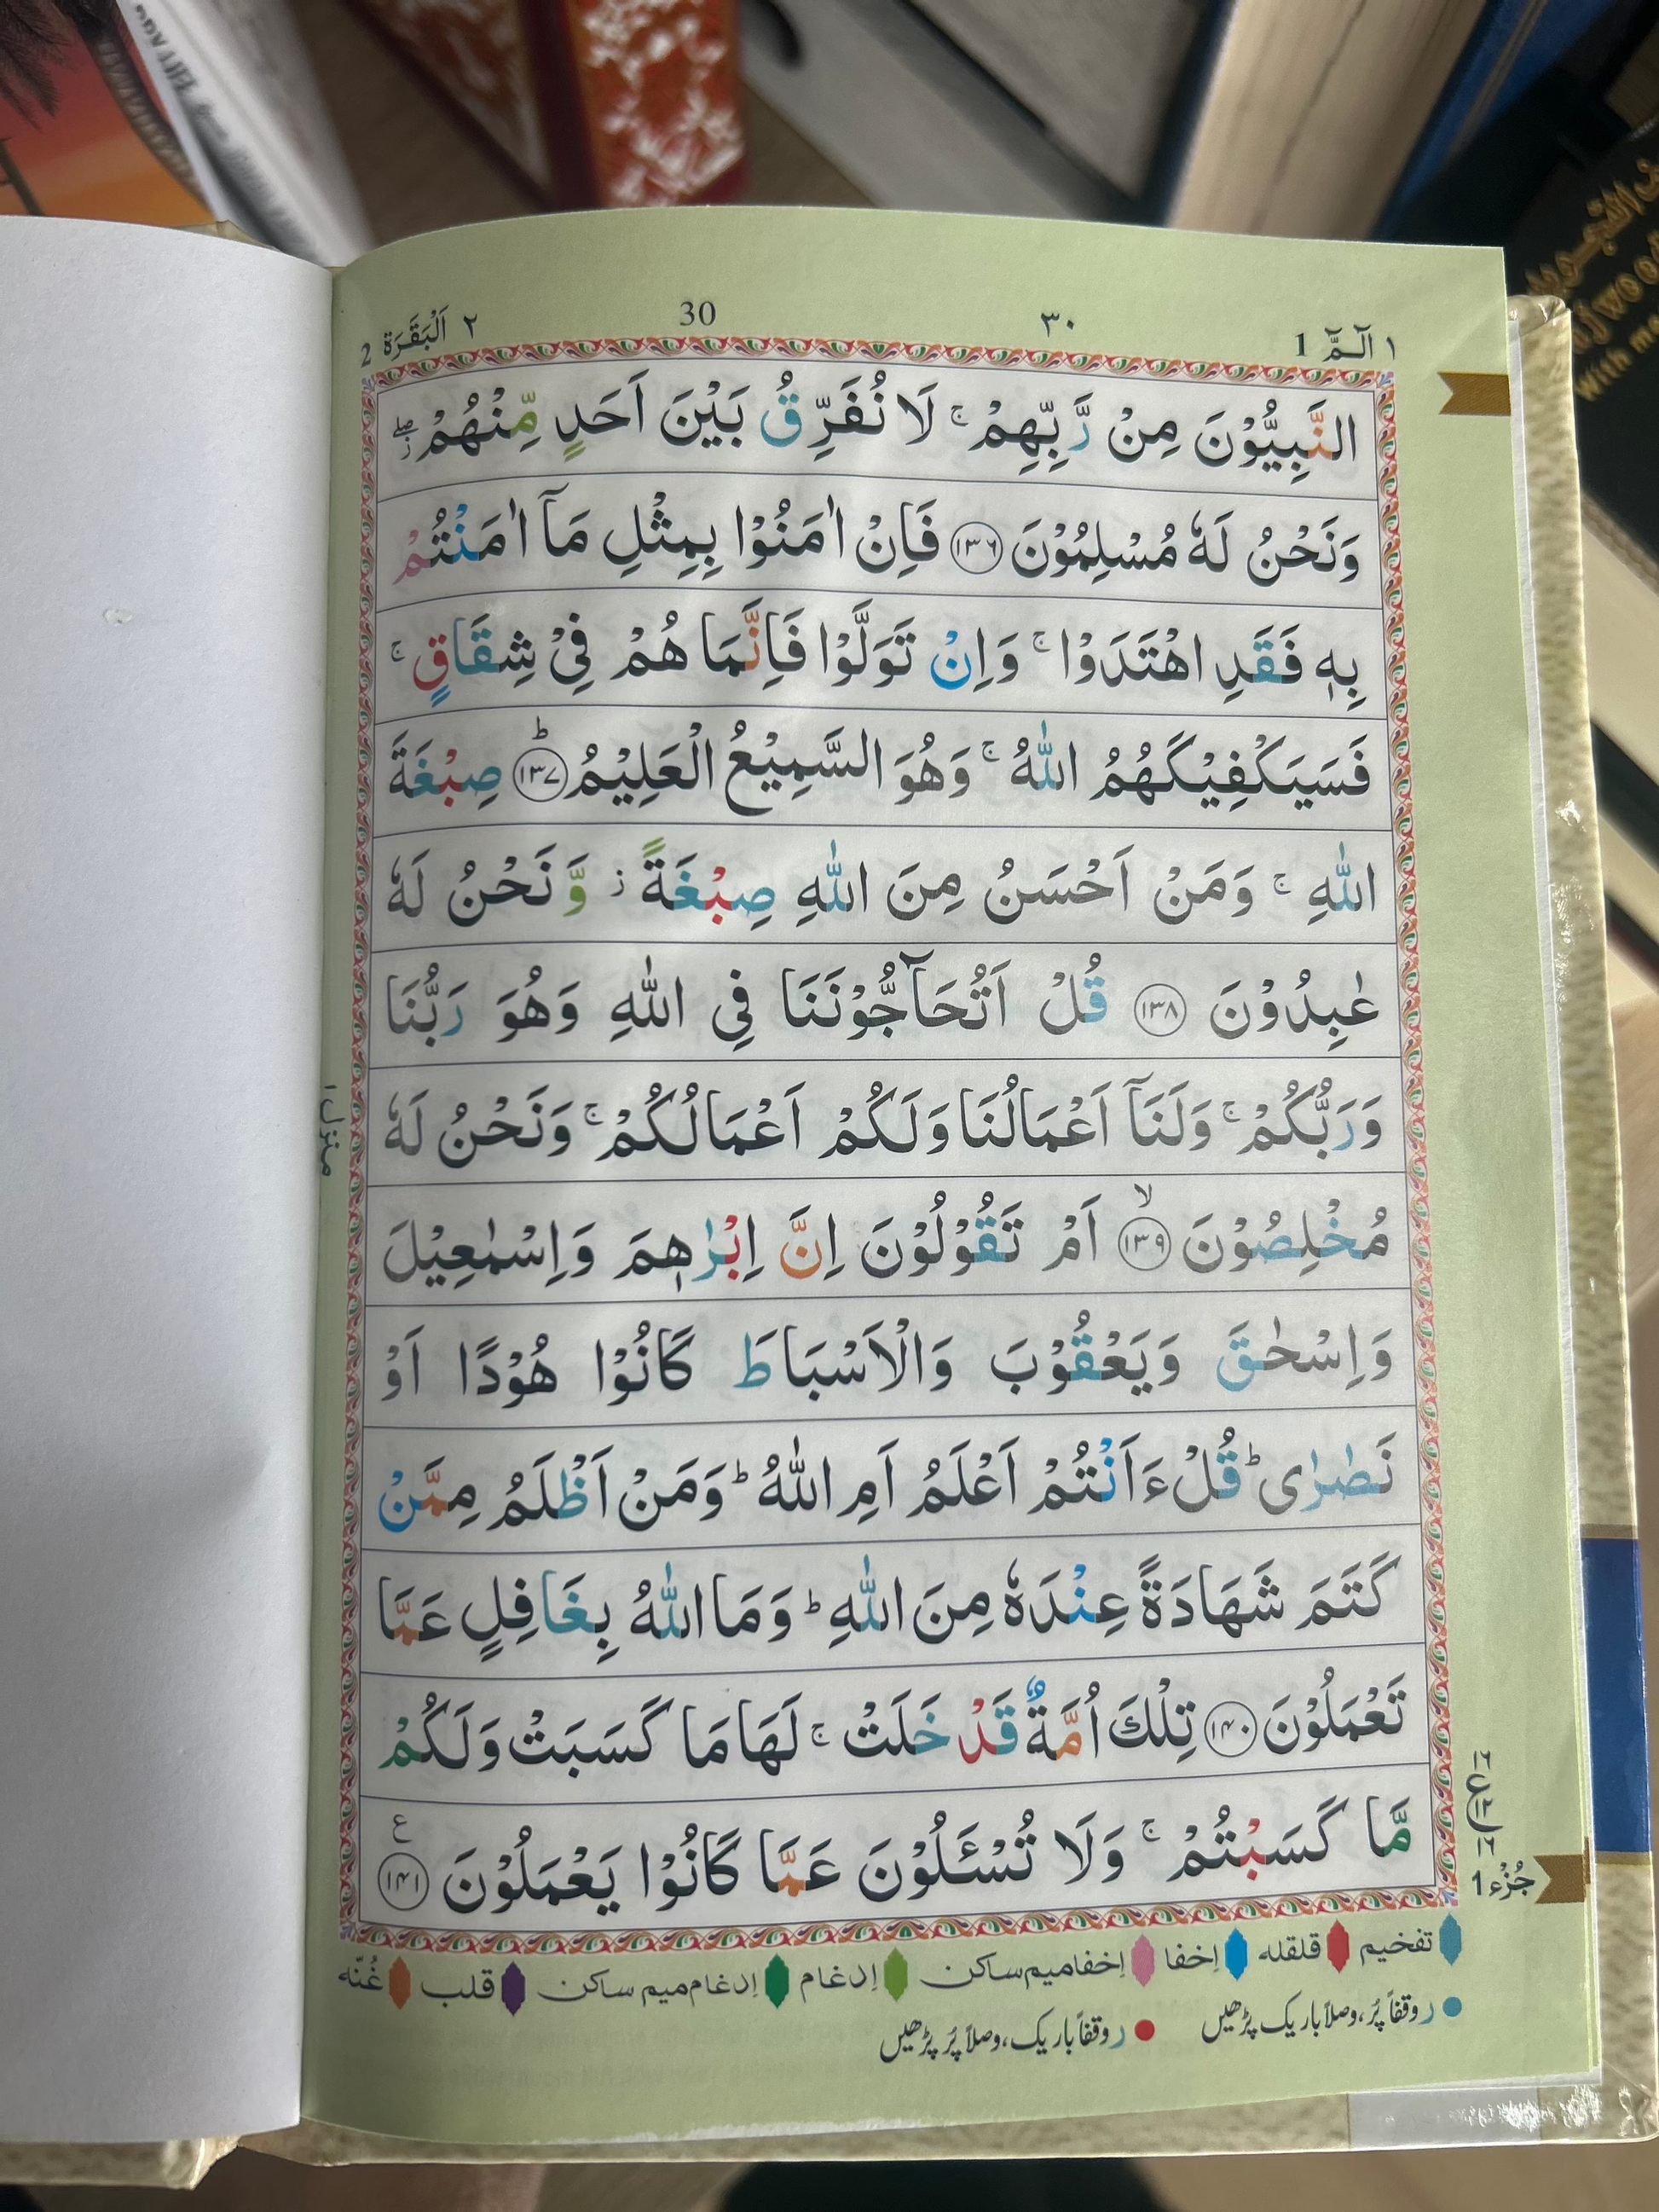 ١ الٓمّٓ 1
٣٠
30
٢ اَلْبَقَرَة 2
النَّبِيُّوْنَ مِنْ رَّبِّهِمْ ۚ لَا نُفَرِّقُ بَيْنَ اَحَدٍ مِّنْهُمْ ۖز
وَنَحْنُ لَهٗ مُسْلِمُوْنَ ﴿١٣٦﴾ فَاِنْ اٰمَنُوْا بِمِثْلِ مَآ اٰمَنْتُمْ
بِهٖ فَقَدِ اهْتَدَوْا ۚ وَاِنْ تَوَلَّوْا فَاِنَّمَا هُمْ فِيْ شِقَاقٍ ۚ
فَسَيَكْفِيْكَهُمُ اللّٰهُ ۚ وَهُوَ السَّمِيْعُ الْعَلِيْمُ ﴿١٣٧﴾ؕ صِبْغَةَ
اللّٰهِ ۚ وَمَنْ اَحْسَنُ مِنَ اللّٰهِ صِبْغَةً ز وَّنَحْنُ لَهٗ
عٰبِدُوْنَ ﴿١٣٨﴾ قُلْ اَتُحَآجُّوْنَنَا فِي اللّٰهِ وَهُوَ رَبُّنَا
وَرَبُّكُمْ ۚ وَلَنَآ اَعْمَالُنَا وَلَكُمْ اَعْمَالُكُمْ ۚ وَنَحْنُ لَهٗ
مُخْلِصُوْنَ ﴿١٣٩﴾ۙ اَمْ تَقُوْلُوْنَ اِنَّ اِبْرٰهٖمَ وَاِسْمٰعِيْلَ
وَاِسْحٰقَ وَيَعْقُوْبَ وَالْاَسْبَاطَ كَانُوْا هُوْدًا اَوْ
نَصٰرٰى ؕ قُلْ ءَاَنْتُمْ اَعْلَمُ اَمِ اللّٰهُ ؕ وَمَنْ اَظْلَمُ مِمَّنْ
كَتَمَ شَهَادَةً عِنْدَهٗ مِنَ اللّٰهِ ؕ وَمَا اللّٰهُ بِغَافِلٍ عَمَّا
تَعْمَلُوْنَ ﴿١٤٠﴾ تِلْكَ اُمَّةٌ قَدْ خَلَتْ ۚ لَهَا مَا كَسَبَتْ وَلَكُمْ
مَّا كَسَبْتُمْ ۚ وَلَا تُسْـَٔلُوْنَ عَمَّا كَانُوْا يَعْمَلُوْنَ ﴿١٤١﴾ ع
منزل ١
جُزْء 1
تفخیم قلقله اِخفا اِخفامیم ساکن اِدغام اِدغام میم ساکن قلب غُنّه
ر وقفاً پُر، وصلاً باریک پڑھیں
ر وقفاً باریک، وصلاً پُر پڑھیں